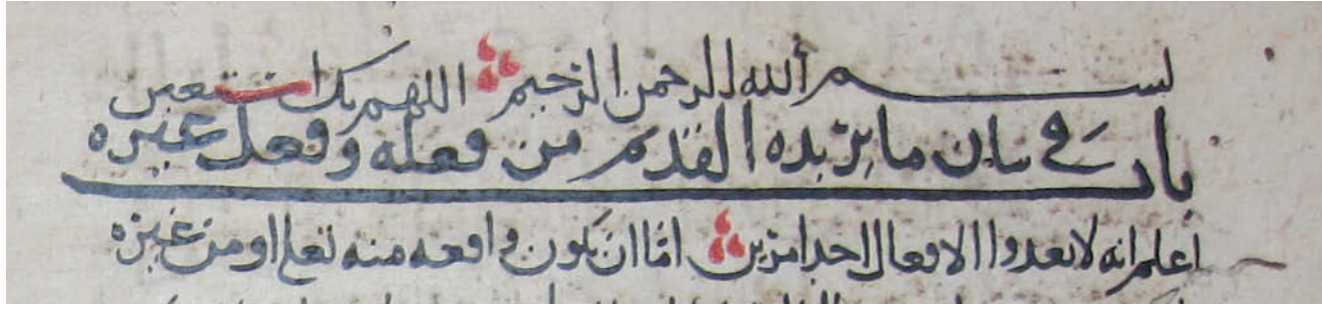 بسم الله الرحمن الرحيم اللهم بك استعين
باب في بيان ما يريده القديم من فعله وفعل غيره
اعلم انه لا تعدوا الافعال احد امرين اما ان تكون واقعه منه تعلى او من غيره